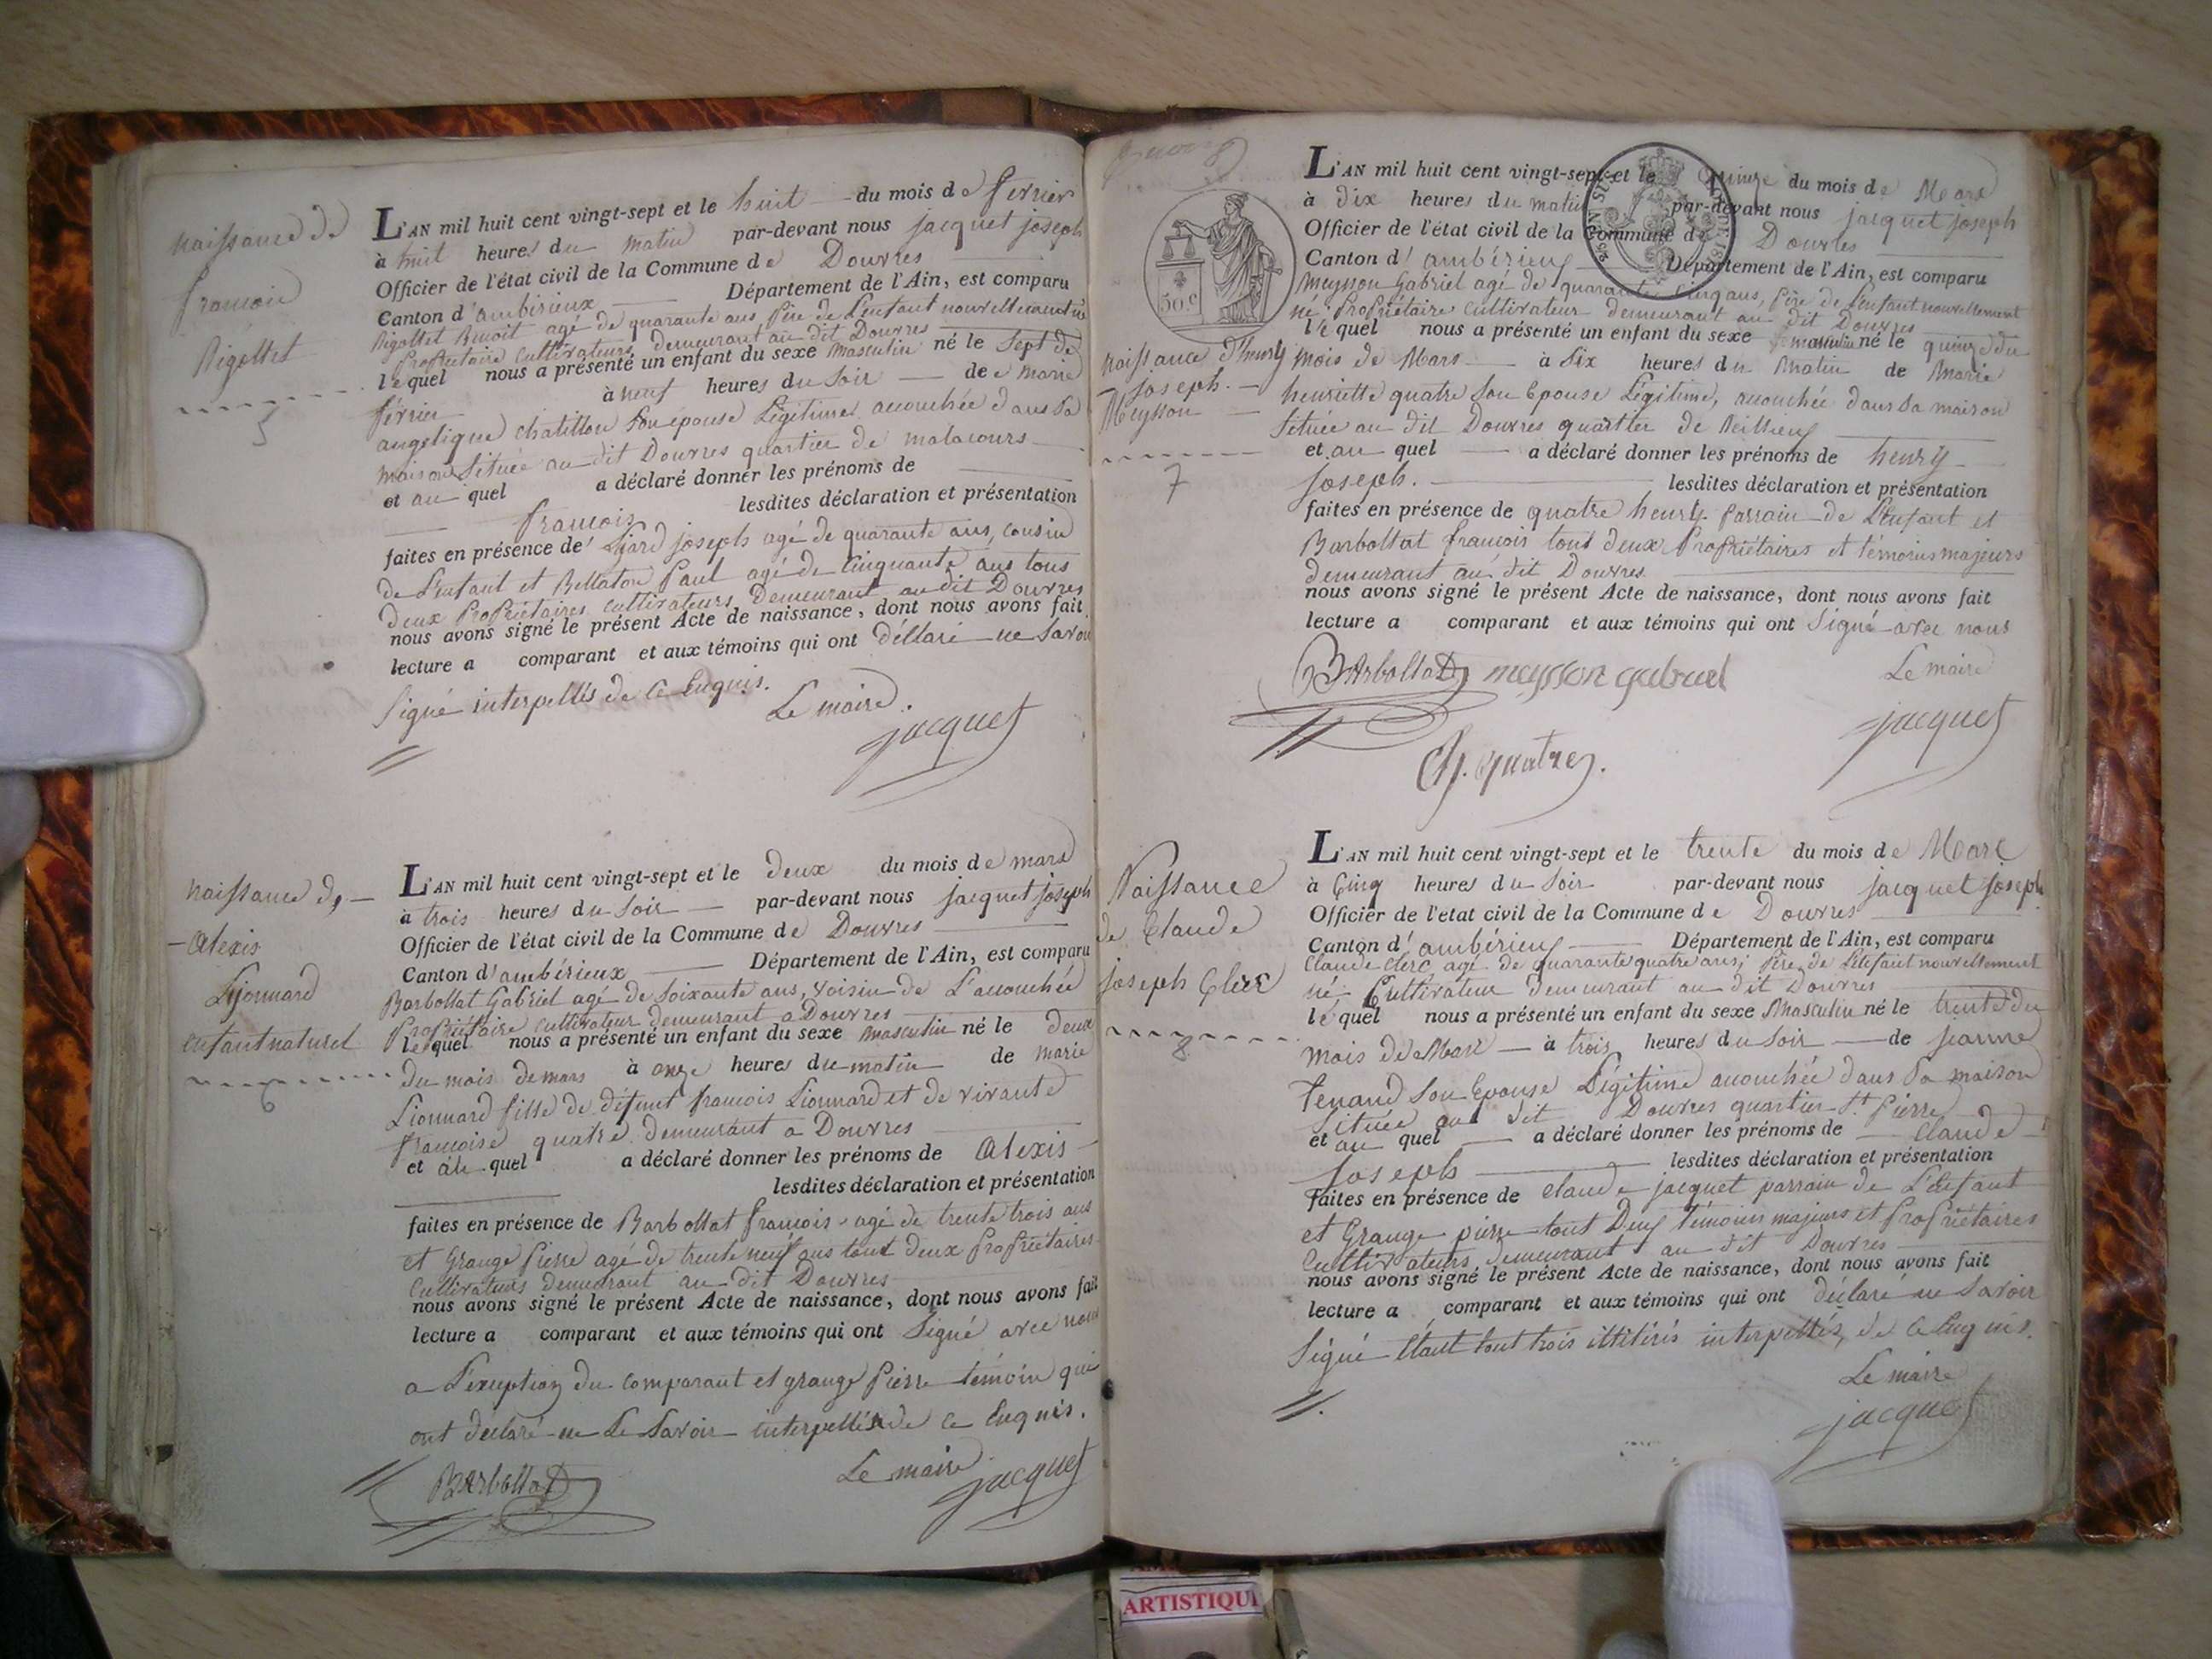 naissance de
francois
Rigottet
5
L'AN mil huit cent vingt-sept et le huit du mois de fevrier
à huit heures du matin par-devant nous jacquet joseph
Officier de l'état civil de la Commune de Douvres
Canton d'ambérieux Département de l'Ain, est comparu
Rigottet Benoit agé de quarante ans Père de L'enfant nouvellement né
Propriétaire cultivateur demeurant au dit Douvres
lequel nous a présenté un enfant du sexe masculin né le Sept de
février à neuf heures du Soir de marie
angelique chatillon Son épouse Légitime accouchée dans Sa
maison Située au dit Douvres quartier de malacours
et au quel a déclaré donner les prénoms de
francois lesdites déclaration et présentation
faites en présence de joseph agé de quarante ans, cousin
de L'enfant et Bellaton Paul agé de Cinquante ans tous
deux Propriétaires cultivateurs Demeurant au dit Douvres
nous avons signé le présent Acte de naissance, dont nous avons fait
lecture a comparant et aux témoins qui ont déclaré ne Savoir
Signé interpellés de Ce Enquis.
Le maire.
jacquet
naissance d,
Alexis
Lyonnard
enfant naturel
6
L'AN mil huit cent vingt-sept et le deux du mois de mars
à trois heures du Soir par-devant nous jacquet joseph
Officier de l'état civil de la Commune de Douvres
Canton d'ambérieux Département de l'Ain, est comparu
Barbollat Gabriel agé de Soixante ans, voisin de L'accouchée
Propriétaire cultivateur demeurant a Douvres
lequel nous a présenté un enfant du sexe masculin né le deux
du mois de mars à onze heures du matin de marie
Lionnard fille de défunt francois Lionnard et de vivante
francoise quatre demeurant a Douvres
et au quel a déclaré donner les prénoms de Alexis
lesdites déclaration et présentation
faites en présence de Barbollat francois agé de trente trois ans
et Grange Pierre agé de trente neuf ans tout deux Propriétaires
Cultivateurs demeurant au dit Douvres
nous avons signé le présent Acte de naissance, dont nous avons fait
lecture a comparant et aux témoins qui ont Signé avec nous
a L'exception du Comparant et grange Pierre témoin qui
ont déclaré ne Le Savoir interpellés de Ce Enquis.
Barbollat
Le maire
jacquet
50.c
naissance d'henry
joseph.
Meysson
7
L'AN mil huit cent vingt-sept et le Quinze du mois de Mars
à dix heures du matin par-devant nous jacquet joseph
Officier de l'état civil de la Commune de Douvres
Canton d'ambérieux Département de l'Ain, est comparu
Meysson Gabriel agé de quarante cinq ans, Père de L'enfant nouvellement
né Propriétaire Cultivateur demeurant au dit Douvres
lequel nous a présenté un enfant du sexe masculin né le quinze du
mois de Mars à Six heures du Matin de Marie
henriette quatre Son Epouse Légitime, accouchée dans Sa maison
Située au dit Douvres quartier de
et au quel a déclaré donner les prénoms de henry
Joseph. lesdites déclaration et présentation
faites en présence de quatre henry parrain de L'Enfant et
Barbollat francois tout deux Propriétaires et témoins majeurs
demeurant au dit Douvres
nous avons signé le présent Acte de naissance, dont nous avons fait
lecture a comparant et aux témoins qui ont Signé avec nous
Barbollat meysson gabriel
Le maire
jacquet
quatre
Naissance
de Claude
joseph Clerc
8
L'AN mil huit cent vingt-sept et le trente du mois de Mars
à Cinq heures du Soir par-devant nous jacquet Joseph
Officier de l'etat civil de la Commune de Douvres
Canton d'ambérieux Département de l'Ain, est comparu
Claude Clerc agé de quarante quatre ans, Père de L'Enfant nouvellement
né Cultivateur demeurant au dit Douvres
lequel nous a présenté un enfant du sexe Masculin né le trente du
mois de Mars à trois heures du Soir de jeanne
Tenand Son Epouse Légitime accouchée dans Sa maison
Située au dit Douvres quartier St. Pierre
et au quel a déclaré donner les prénoms de Claude
Joseph lesdites déclaration et présentation
faites en présence de claude jacquet parrain de L'Enfant
et Grange pierre tout Deux témoins majeurs et Propriétaires
Cultivateurs demeurant au dit Douvres
nous avons signé le présent Acte de naissance, dont nous avons fait
lecture a comparant et aux témoins qui ont déclaré ne Savoir
Signé Etant tout trois illitérés interpellés, de Ce Enquis.
Le maire
jacquet
ARTISTIQU